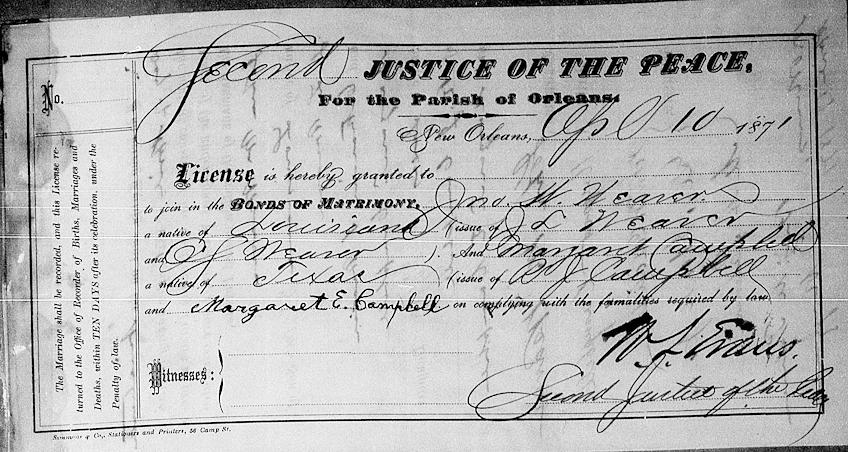 Second JUSTICE OF THE PEACE,
For the Parish of Orleans.
No.
New Orleans, Apl 10 1871
License is hereby granted to
to join in the BONDS OF MATRIMONY, Jno. W. Weaver
a native of Louisiana (issue of J L Weaver
and Weaver ). And Margaret Campbell
a native of Texas (issue of B J Campbell
and Margaret E. Campbell on complying with the formalities required by law
Witnesses:
Second Justice of the Peace
The Marriage shall be recorded, and this License re-
turned to the Office of Recorder of Births, Marriages and
Deaths, within TEN DAYS after its celebration, under the
Penalty of law.
& Co., Stationers and Printers, 56 Camp St.